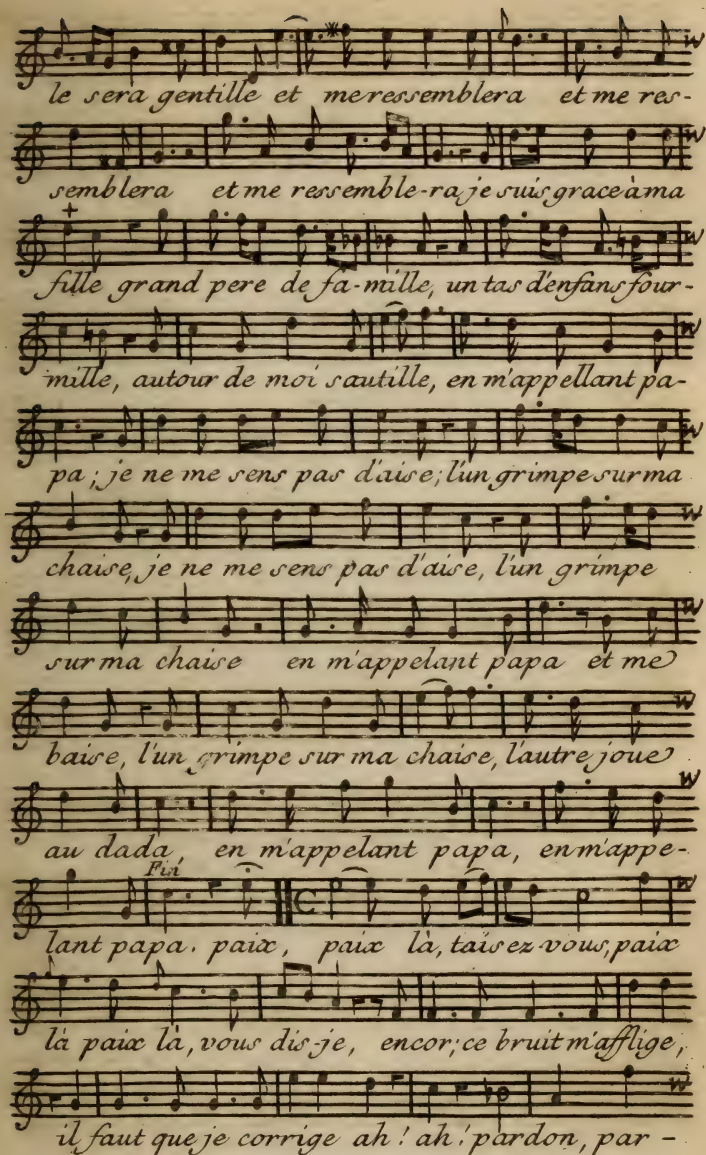 le sera gentille et me ressemblera et me res-
semblera et me ressemble-ra je suis grace à ma
fille grand pere de fa-mille, un tas d'enfans four-
mille, autour de moi sautille, en m'appellant pa-
pa; je ne me sens pas d'aise; l'un grimpe sur ma
chaise, je ne me sens pas d'aise, l'un grimpe
sur ma chaise en m'appelant papa et me
baise, l'un grimpe sur ma chaise, l'autre joue
au dada, en m'appelant papa, en m'appe-
Fin
lant papa. paix, paix là, taisez-vous, paix
là paix là, vous dis-je, encor; ce bruit m'afflige,
il faut que je corrige ah! ah! pardon, par-